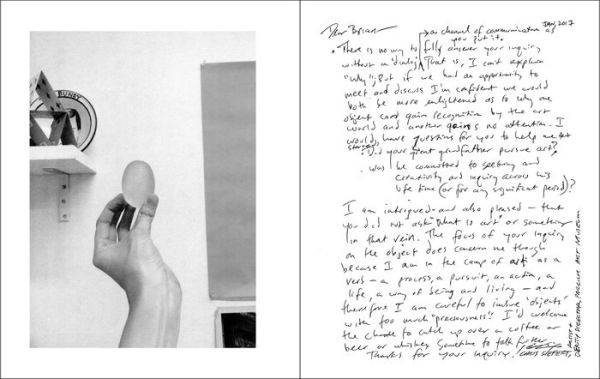 BUNNY
Dear Brian JAN, 2017
as channel of communication as you put it.
• There is no way to fully answer your inquiry
without a 'dialog'. That is, I can't explain
"why", But if we had an opportunity to
meet and discuss I'm confident we would
both be more enlightened as to why one
object could gain recognition by the art
world and another gains no attention. I
would, have questions for you to help me
• Did your great grandfather pursue art?
• Was he committed to seeking and
creativity and inquiry across his
life time (or for any significant period)?
I am intrigued - and also pleased - that
you did not ask "What is art" or something
in that vein. The focus of your inquiry
on the object does concern me though
because I am in the camp of art as a
verb - a process, a pursuit, an action, a
life, a way of being and living - and
therefore I am careful to imbue 'objects'
with too much "preciousness". I'd welcome
the chance to catch up over a coffee or
beer or whiskey sometime to talk further
Thanks for your inquiry.
ARTIST +
DEPUTY DIRECTOR, ART MUSEUM